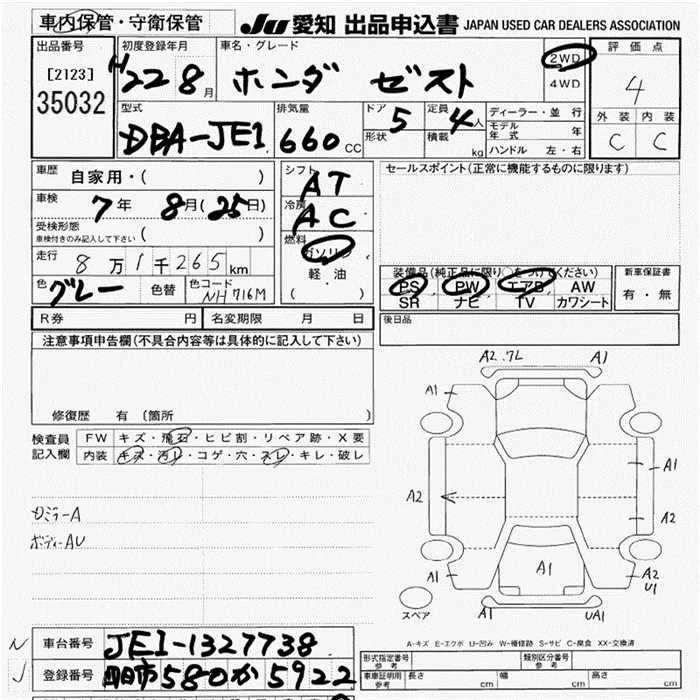 車内保管・守衛保管
JU 愛知 出品申込書 JAPAN USED CAR DEALERS ASSOCIATION
出品番号
[2123]
35032
初度登録年月
H22 8月
車名・グレード
ホンダ ゼスト
2WD
4WD
評価点
4
外装 内装
C C
型式
DBA-JE1
排気量
660cc
ドア 5
形状
定員 4人
積載 kg
ディーラー・並行
モデル年式 年
ハンドル 左・右
車歴 自家用・( )
車検 7年 8月(25日)
受検形態
車検付きのみ記入して下さい ( )
走行 8万1千265km
色 グレー 色替 色コード NH716M
シフト AT
冷房 AC
燃料 ガソリン
軽・油
( )
セールスポイント(正常に機能するものに限ります)
装備品(純正品に限り○をつけてください)
PS PW エアB AW
SR ナビ TV カワシート
新車保証書
有・無
R券 円 名変期限 月 日
後日品
注意事項申告欄(不具合内容等は具体的に記入して下さい)
修復歴 有 (箇所 )
検査員記入欄
FW キズ・飛石・ヒビ割・リペア跡・X要
内装 キズ・汚レ・コゲ・穴・スレ・キレ・破レ
ロミラーA
ボディーAU
A2 .7L A1
A1
A1
A2
A2
A1 A1 A2
U1
A1 UA1
スペア
N
車台番号 JE1-1327738
J
登録番号 四日市580か5922
A-キズ E-エクボ U-凹み W-補修跡 S-サビ C-腐食 XX-交換済
形式指定番号 参考 類別区分番号 参考
車庫証明用 参考 長さ 幅 高さ